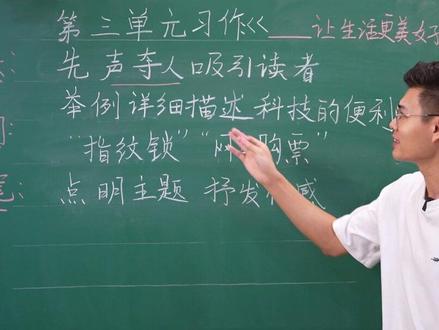 第三单元习作<<____让生活更美好
先声夺人吸引读者
举例详细描述科技的便利
"指纹锁" "网 购票"
尾: 点明主题 抒发 感